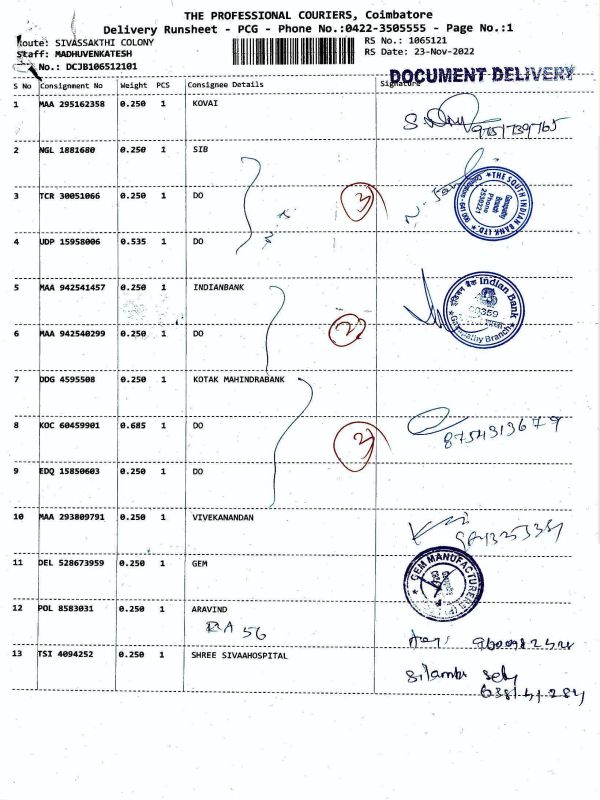 THE PROFESSIONAL COURIERS, Coimbatore
Delivery Runsheet - PCG - Phone No.:0422-3505555 - Page No.:1
Route: SIVASSAKTHI COLONY
RS No.: 1065121
Staff: MADHUVENKATESH
RS Date: 23-Nov-2022
No.: DCJB106512101
DOCUMENT DELIVERY
S No Consignment No Weight PCS Consignee Details Signature
1 MAA 295162358 0.250 1 KOVAI
9751739765
2 NGL 1881680 0.250 1 SIB
3 TCR 30051066 0.250 1 DO 3
THE SOUTH INDIAN BANK LTD.
Ganapathy
Branch
Phone
2530221
Coimbatore - 641 006
4 UDP 15958006 0.535 1 DO
5 MAA 942541457 0.250 1 INDIANBANK
इंडियन बैंक Indian Bank
00359
Ganapathy Branch
6 MAA 942540299 0.250 1 DO 2
7 DDG 4595508 0.250 1 KOTAK MAHINDRABANK
8 KOC 60459901 0.685 1 DO
8754313679
9 EDQ 15850603 0.250 1 DO
10 MAA 293809791 0.250 1 VIVEKANANDAN
11 DEL 528673959 0.250 1 GEM
GEM MANUFACTURERS (P)
12 POL 8583031 0.250 1 ARAVIND
RA 56
13 TSI 4094252 0.250 1 SHREE SIVAAHOSPITAL